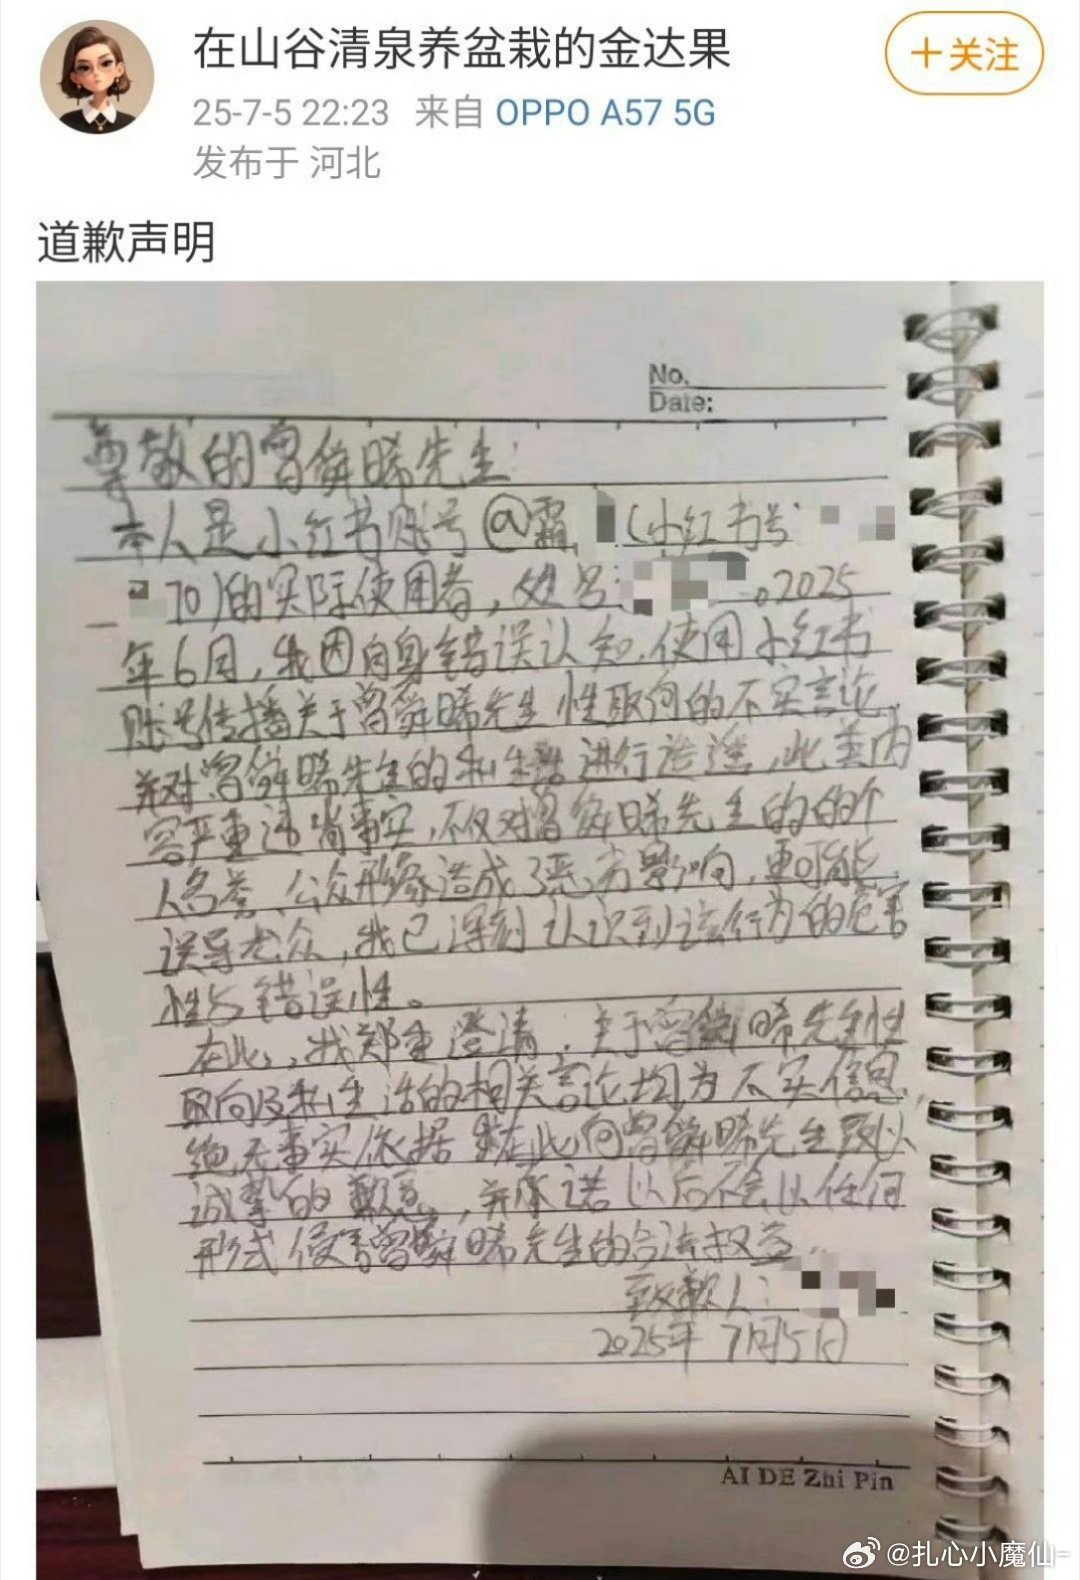 在山谷清泉养盆栽的金达果
+关注
25-7-5 22:23 来自 OPPO A57 5G
发布于 河北
道歉声明
No.
Date:
尊敬的曾舜晞先生:
本人是小红书账号@霜 (小红书号:
70)的实际使用者,姓名: 。2025
年6月,我因自身错误认知,使用小红书
账号传播关于曾舜晞先生性取向的不实言论,
并对曾舜晞先生的私生活进行造谣,此类内
容严重违背事实,不仅对曾舜晞先生的的个
人名誉、公众形象造成了恶劣影响,更可能
误导大众,我已深刻认识到该行为的危害
性与错误性。
在此,我郑重澄清:关于曾舜晞先生性
取向及私生活的相关言论均为不实信息,
绝无事实依据 在此向曾舜晞先生致以
诚挚的歉意,并承诺以后不会以任何
形式侵害曾舜晞先生的合法权益.
致歉人:
2025年7月5日
AI DE Zhi Pin
@扎心小魔仙-